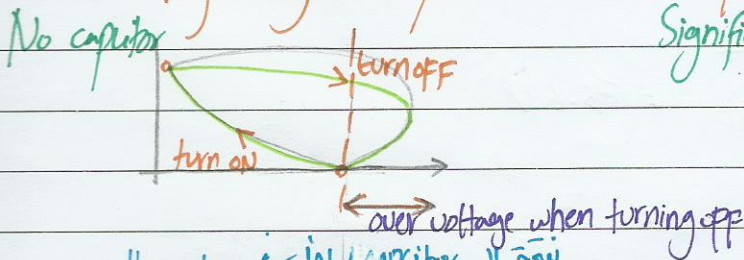 No caputor
Signifi
turn OFF
turn ON
over voltage when turning off